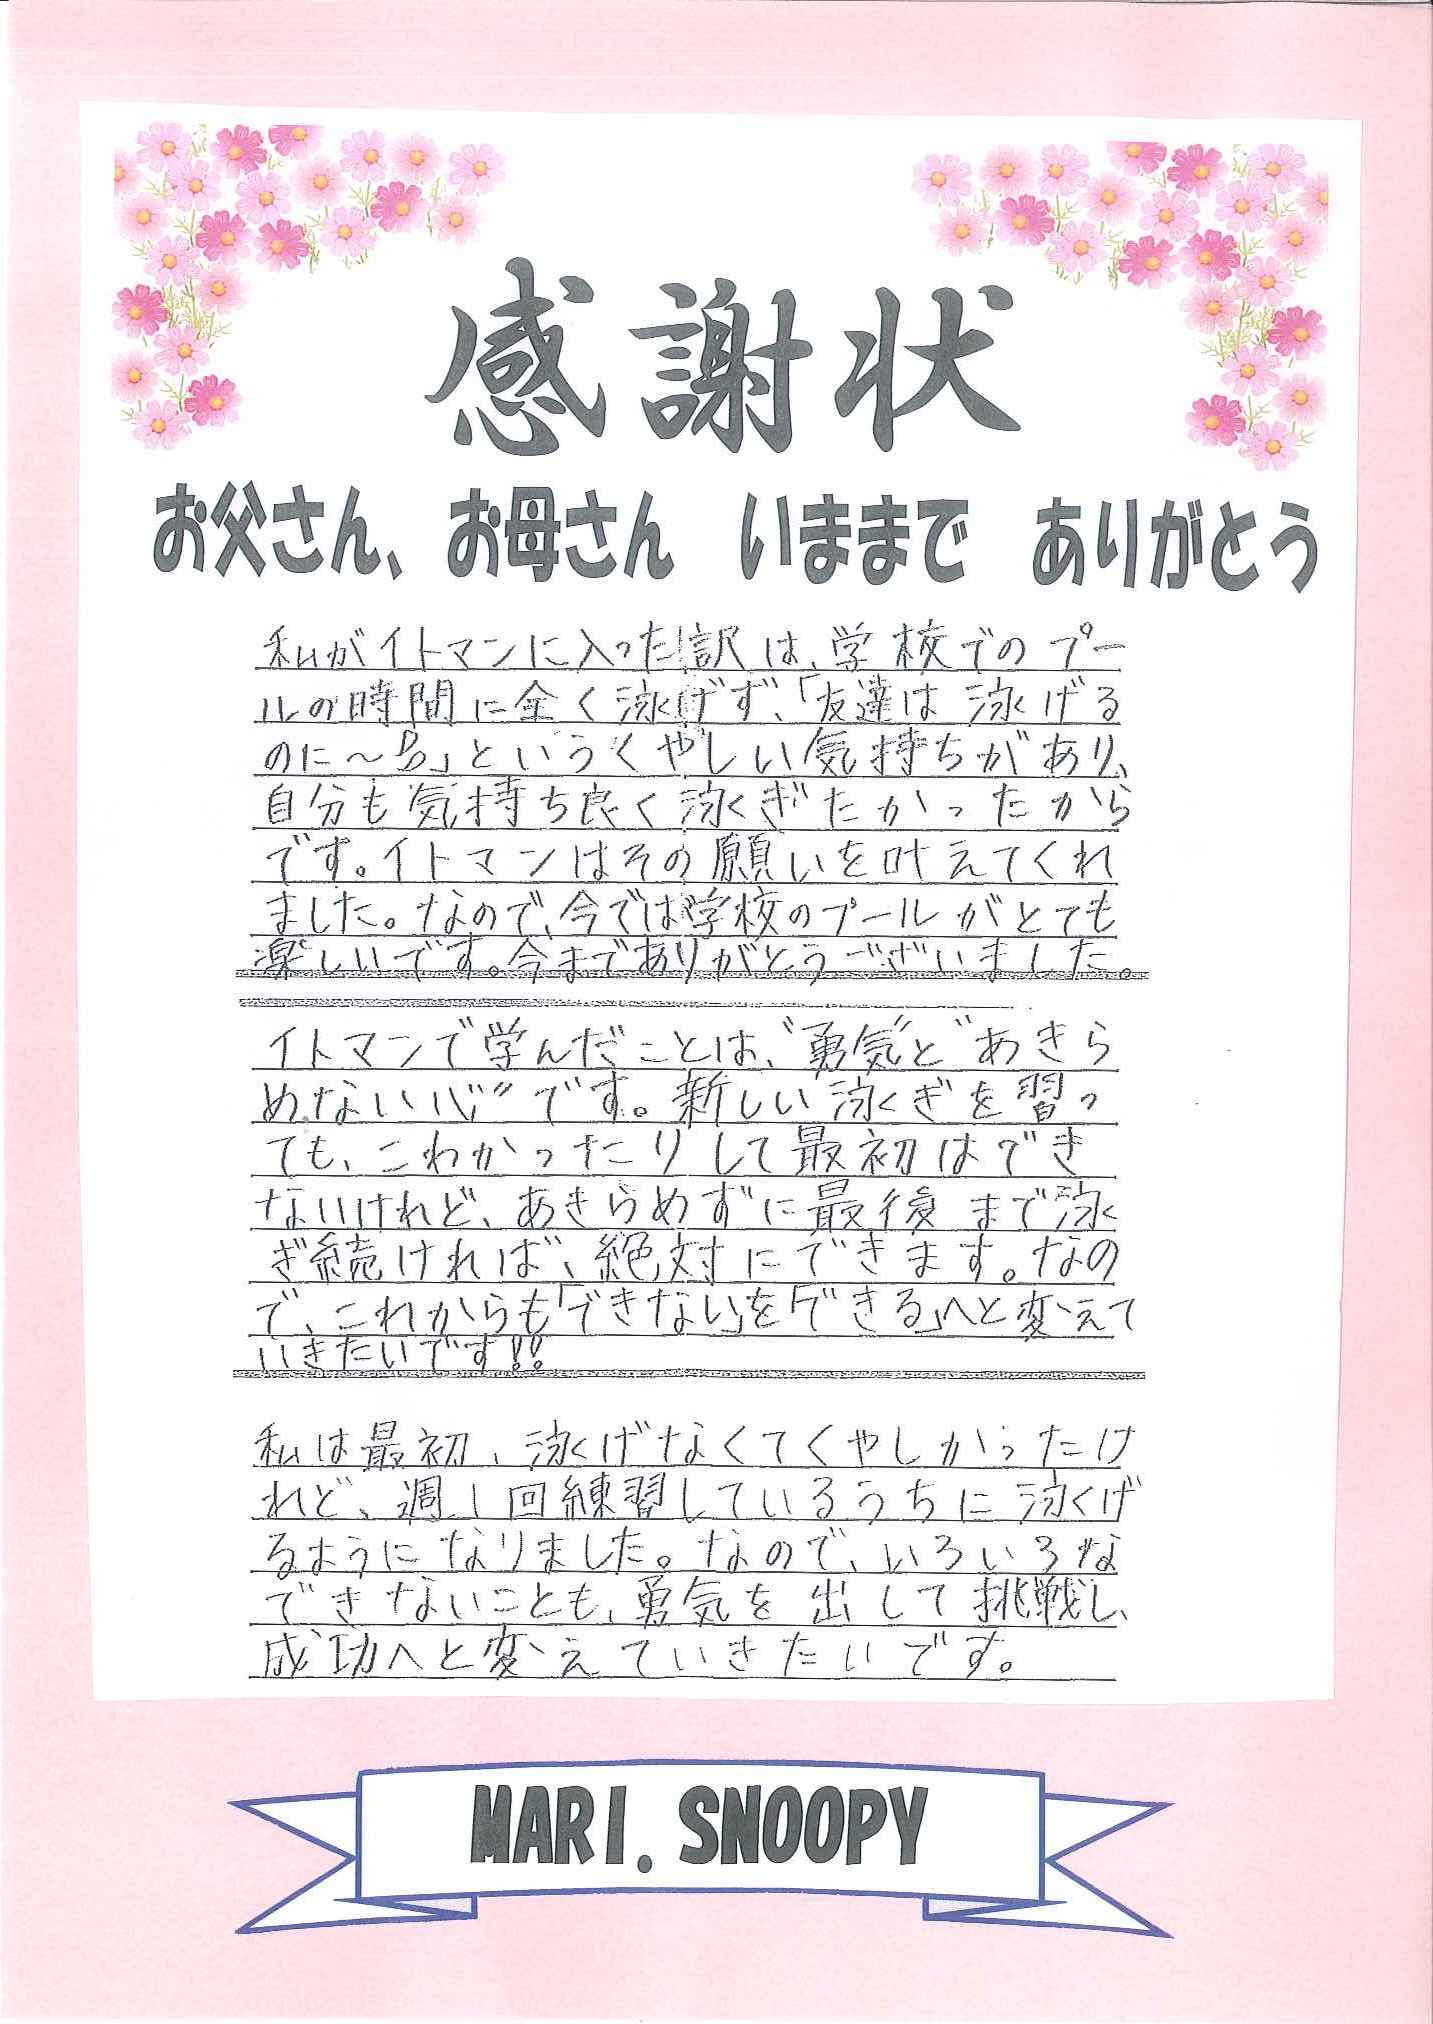 感謝状
お父さん、お母さん いままで ありがとう
私がイトマンに入った訳は、学校でのプー
ルの時間に全く泳げず、「友達は泳げる
のに～」というくやしい気持ちがあり、
自分も気持ち良く泳ぎたかったから
です。イトマンはその願いを叶えてくれ
ました。なので、今では学校のプールがとても
楽しいです。今までありがとうございました。
イトマンで学んだことは、"勇気"と"あきら
めない心"です。新しい泳ぎを習っ
ても、こわかったりして最初はでき
ないけれど、あきらめずに最後まで泳
ぎ続ければ、絶対にできます。なの
で、これからも「できない」を「できる」へと変えて
いきたいです!!
私は最初、泳げなくてくやしかったけ
れど、週1回練習しているうちに泳げ
るようになりました。なので、いろいろな
できないことも、勇気を出して挑戦し、
成功へと変えていきたいです。
MARI. SNOOPY